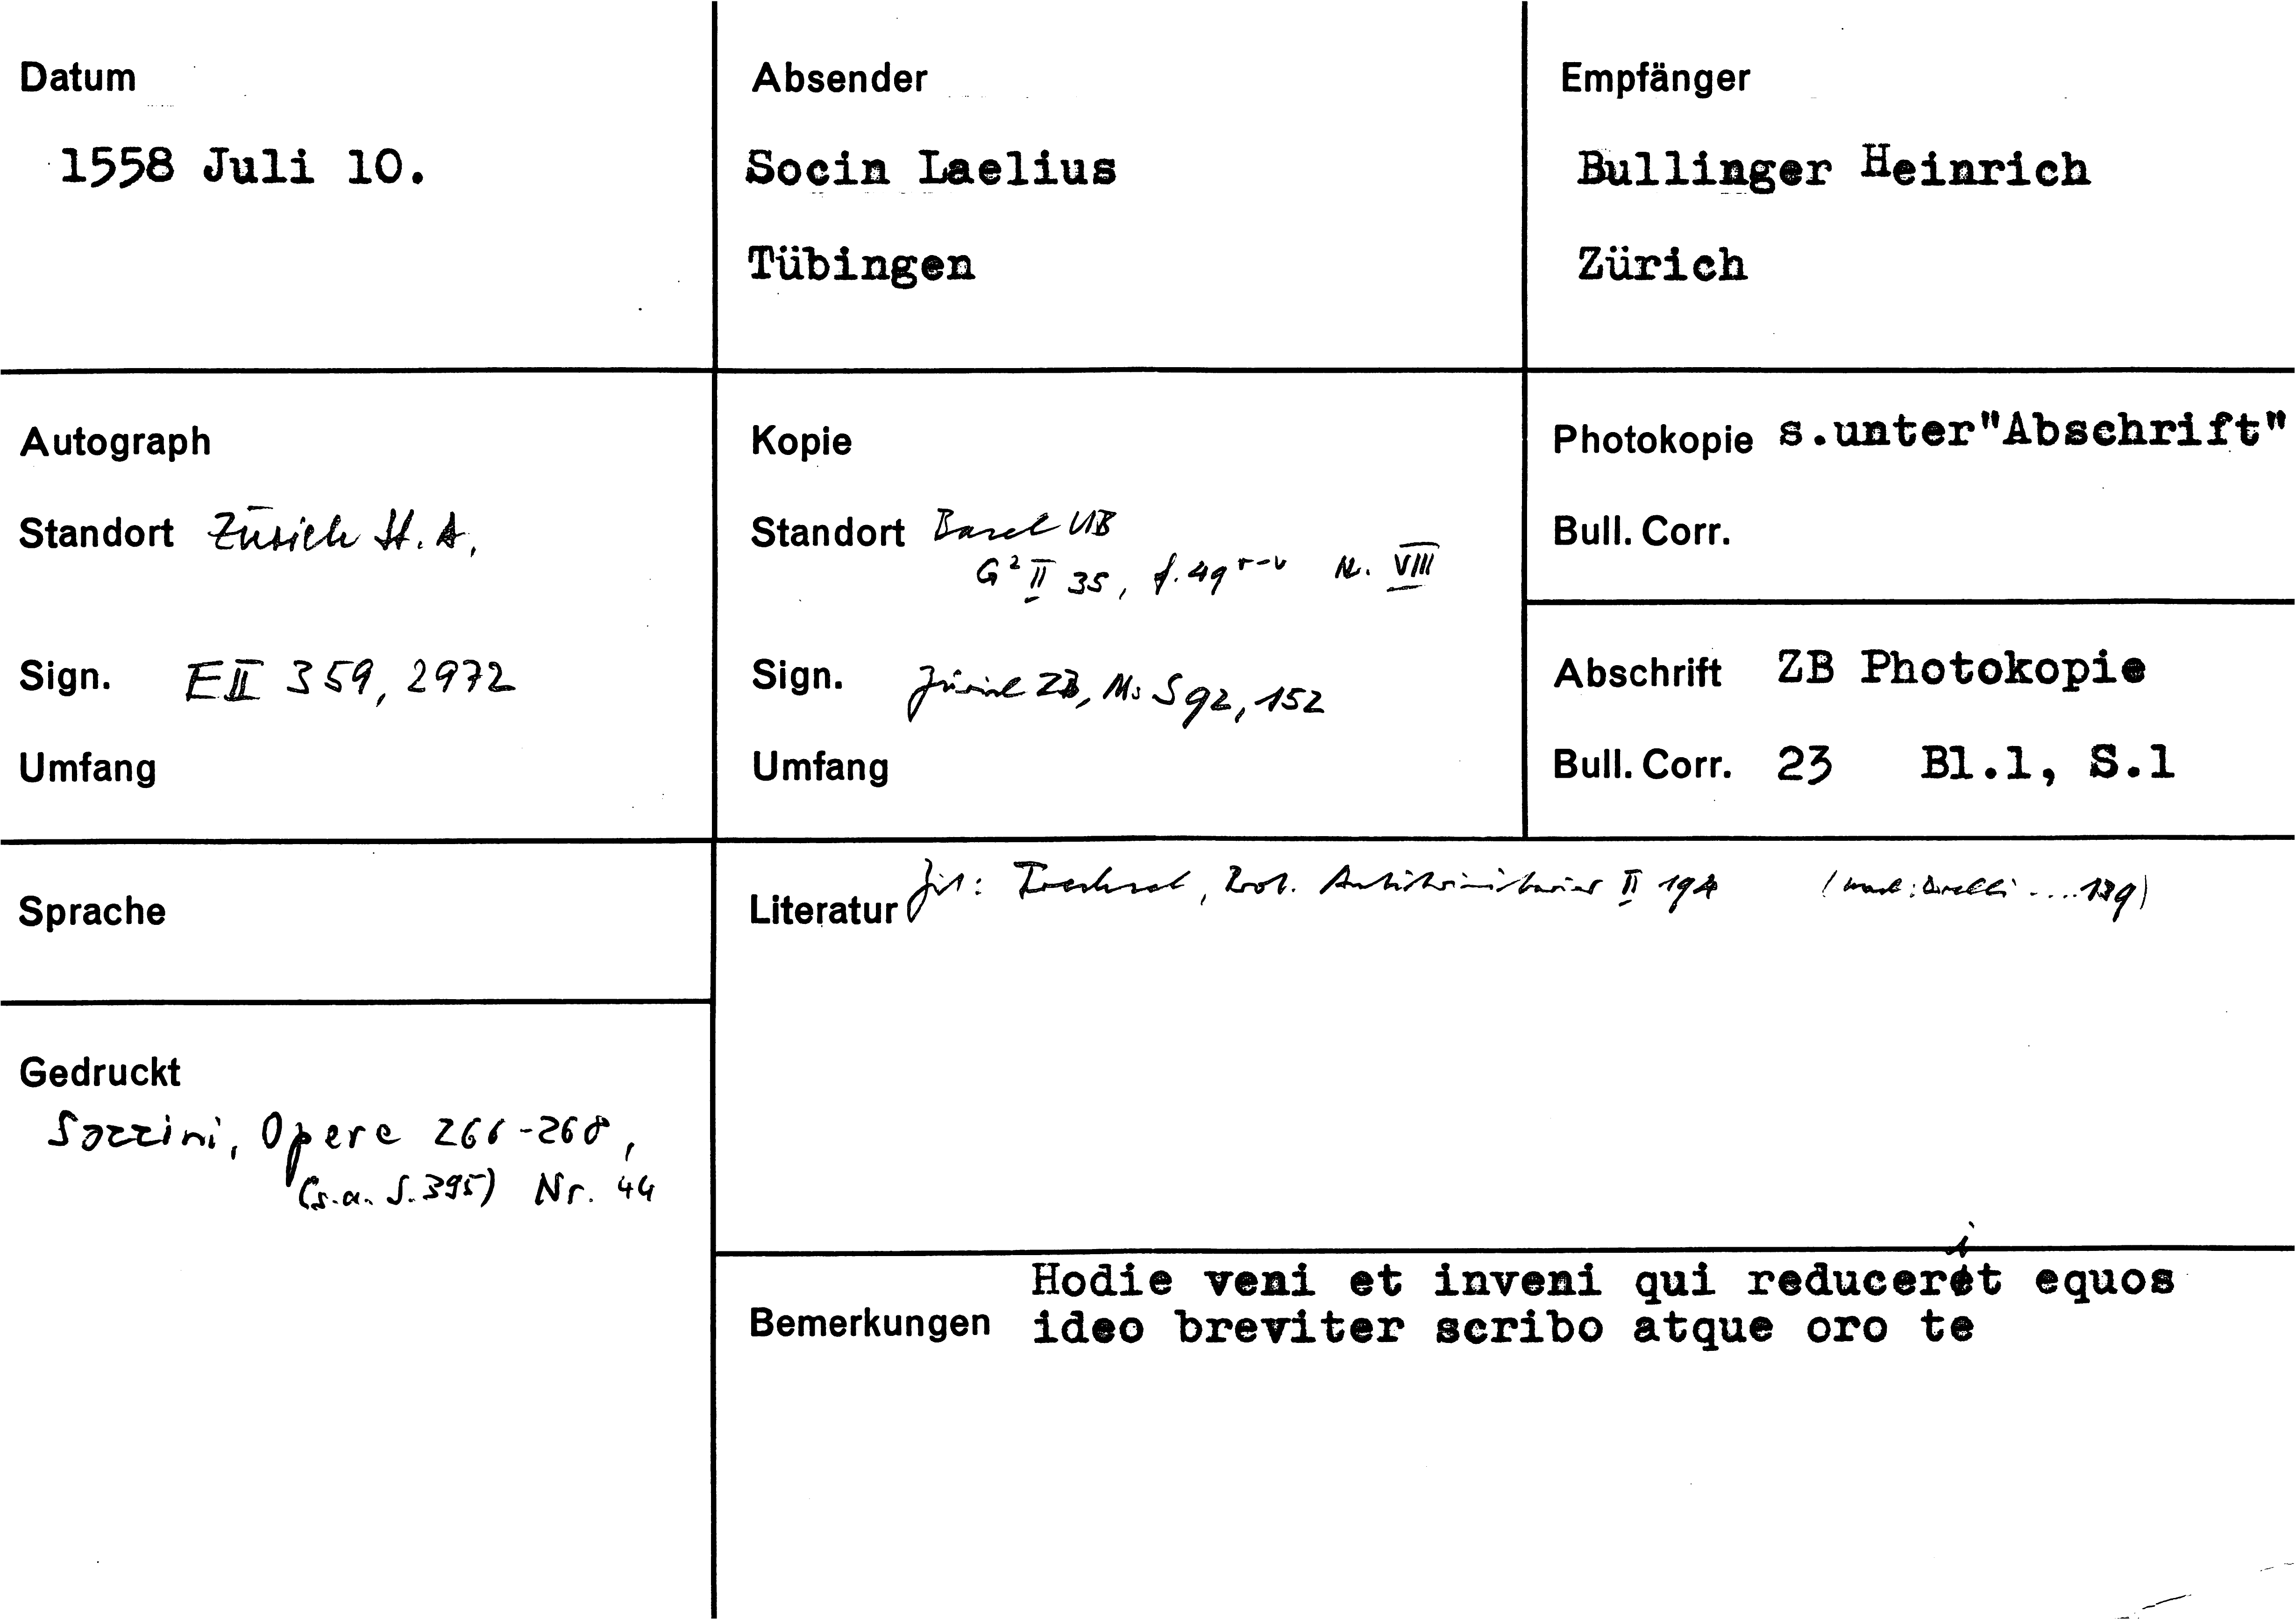 Datum
1558 Juli 10.
Absender
Socin Laelius
Tübingen
Empfänger
Bullinger Heinrich
Zürich
Autograph
Standort Zürich St. A.
Sign. E II 359, 2972
Umfang
Kopie
Standort Basel UB
G² II 35, f. 49 r-v N. VIII
Sign. Zürich ZB, Ms S 92, 152
Umfang
Photokopie s.unter"Abschrift"
Bull. Corr.
Abschrift ZB Photokopie
Bull. Corr. 23 Bl.1, S.1
Sprache
Literatur Zit: Trechsel, Prot. Antitrinitarier II 194 (nach: Orelli .... 139)
Gedruckt
Sozzini, Opere 266-268,
(s.a. S. 395) Nr. 44
Bemerkungen
Hodie veni et inveni qui reducerit equos
ideo breviter scribo atque oro te